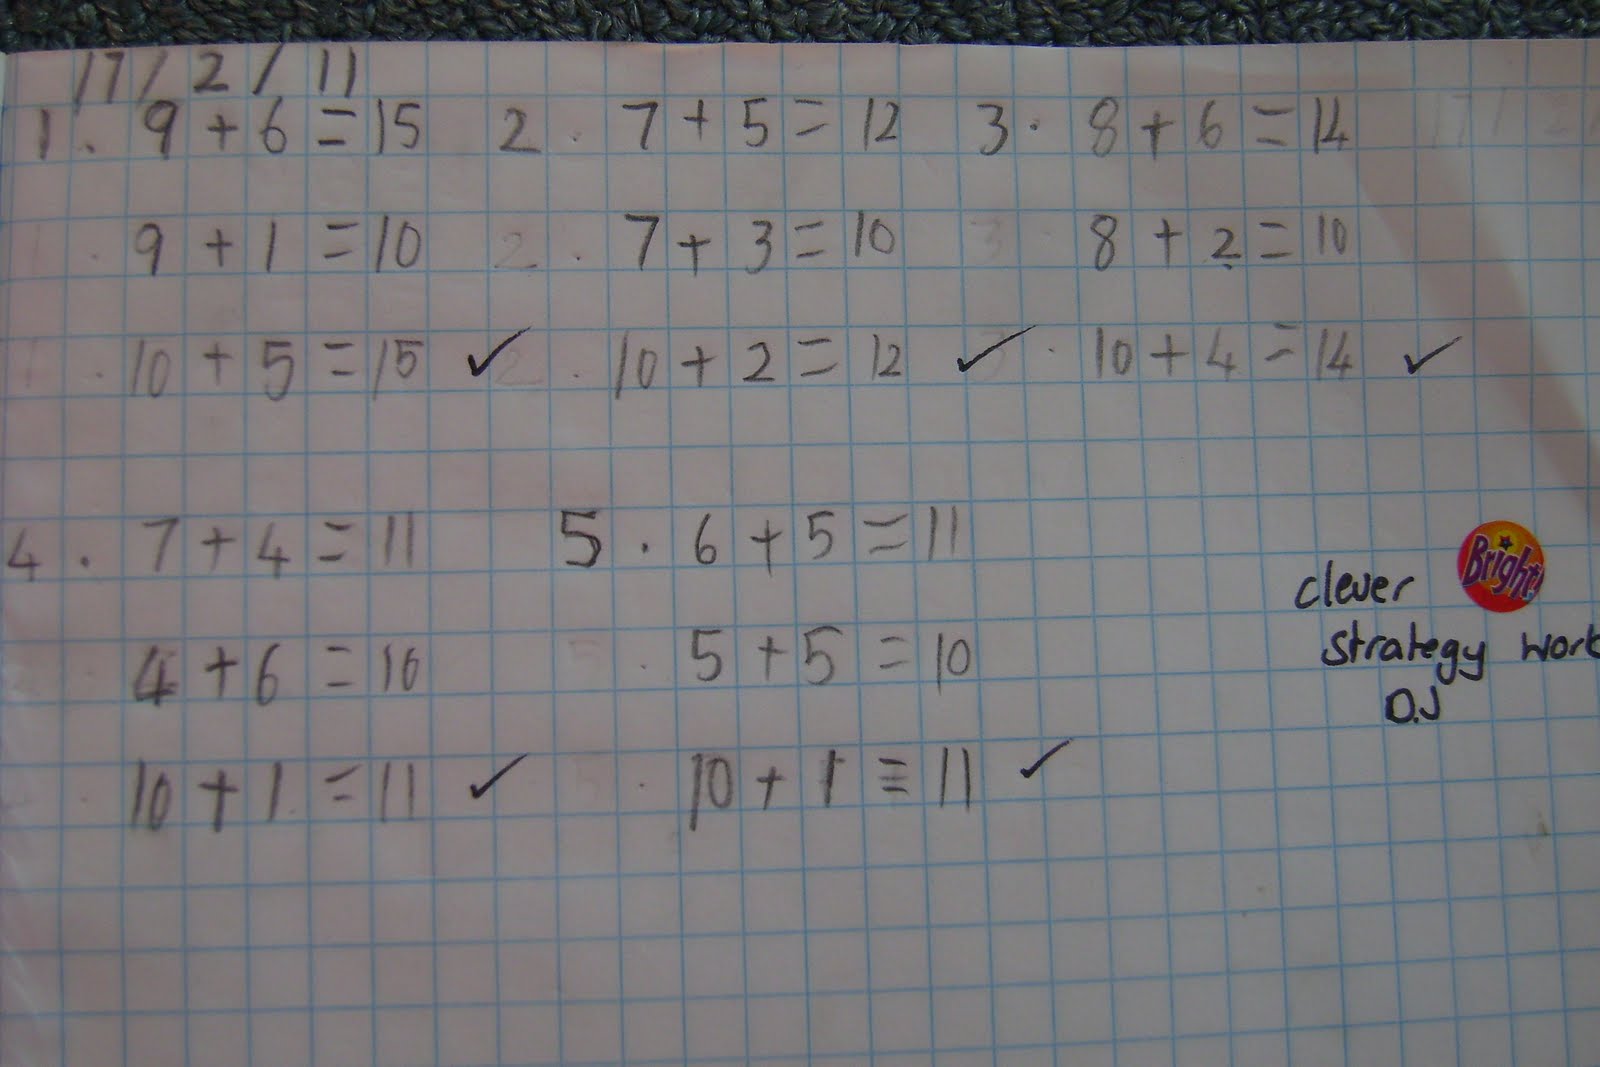 17/2/11
1. 9+6=15 2. 7+5=12 3. 8+6=14
9+1=10 7+3=10 8+2=10
10+5=15 ✓ 10+2=12 ✓ 10+4=14 ✓
4. 7+4=11 5. 6+5=11
4+6=10 5+5=10
10+1=11 ✓ 10+1=11 ✓
Bright!
clever
strategy work
D.J